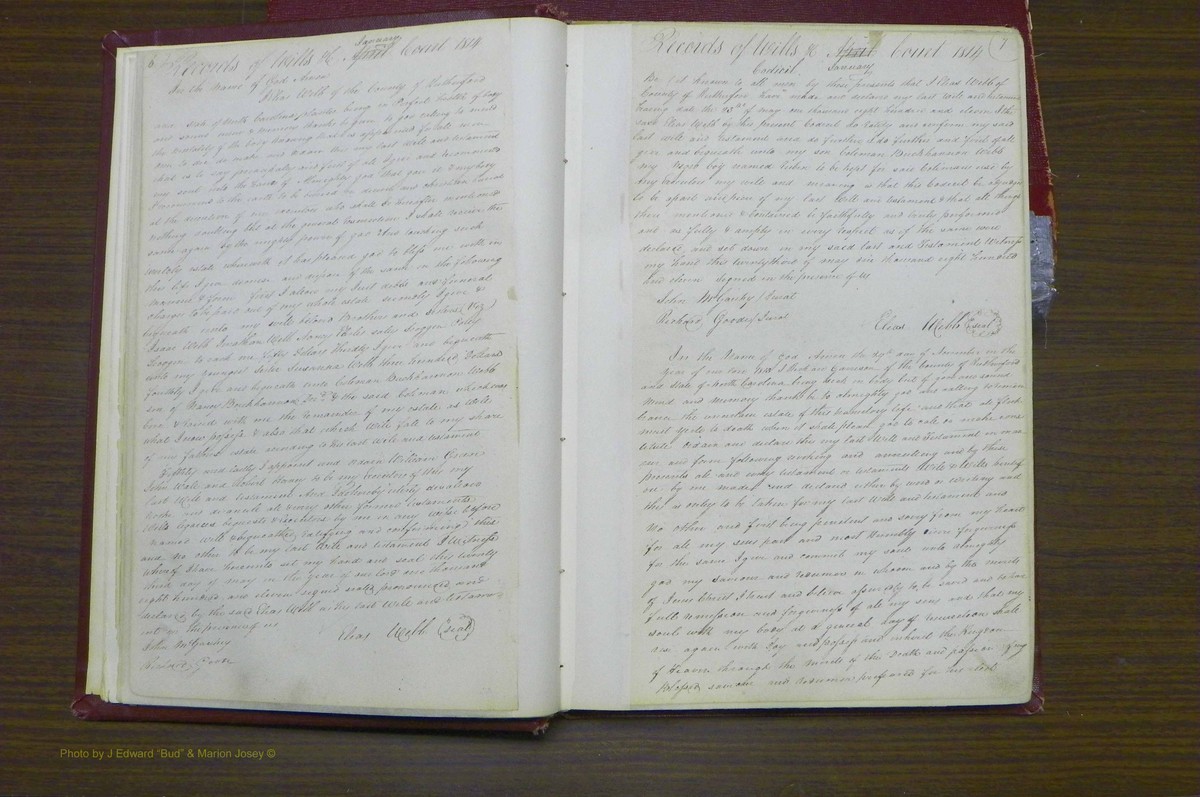 6
Records of Wills &c April Court 1814
January
In the Name of God Amen
I Elias Webb of the County of Rutherford
and State of North Carolina planter being in Perfect health of body
and sound mind & memory thanks be given to god calling to mind
the mortality of the body knowing that it is appointed for all men
once to die do make and ordain this my last will and testament
that is to say principally and first of all I give and recommend
my soul into the hands of Almighty god that gave it & my body
I recommend to the earth to be buried in decent and christian burial
at the discretion of my executors who shall be hereafter mentioned
nothing doubting but at the general resurrection I shall receive the
same again by the mighty power of god & as touching such
worldly estate wherewith it has pleased god to bless me with in
this life I give devise and dispose of the same in the following
manner & form First I allow my Just debts and funeral
charges to be paid out of my whole estate secondly I give &
bequeath unto my well beloved Brothers and sisters (Viz)
Isaac Webb Jonathan Webb
to each one fifty Dollars Thirdly I give and bequeath
unto my youngest sister Susanna Webb three hundred Dollars
fourthly I give and bequeath unto Coleman Buckhannon Webb
son of Nancy Buckhannon & the said Coleman which was
born & raised with me the remainder of my estate as well
what I now possess & also that which will fall to my share
of my father's estate owning to his last will and testament
Fifthly and lastly I appoint and ordain William Green
John Wall and Robert to be my executors of this my
last will and testament And I do hereby utterly disallow
revoke and disannul all & every other former testaments
wills legacies bequests & executors by me in any wise before
named willed & bequeathed ratifying and confirming this
and no other to be my last will and testament In witness
whereof I have hereunto set my hand and seal this twenty
third day of may in the year of our lord one thousand
eight hundred and eleven signed sealed pronounced and
declared by the said Elias Webb as his last will and testament
in the presence of us
John McGankey
Elias Webb (seal)
Richard Good
Records of Wills &c April Court 1814
7
Codicil. January
Be it known to all men by these presents that I Elias Webb of
County of Rutherford have made and declared my last will and testament
bearing date the 23d of may one thousand eight hundred and eleven I the
said Elias Webb by this present Codicil do ratify and confirm my said
last will and testament and as further I do further and first give
give and bequeath unto my son Coleman Buckhannon Webb
my Negro boy named to be kept for said Coleman use by
my executors my will and meaning is that this Codicil be adjudged
to be a part and parcel of my last will and testament & that all things
therein mentioned & contained be faithfully and truly performed
and as fully & amply in every respect as if the same were
declared and set down in my said last and Testament Witness
my hand this twenty third of may one thousand eight hundred
and eleven signed in the presence of us
John McGankey Jurat
Richard Good Jurat
Elias Webb (seal)
In the Name of God Amen the day of November in the
year of our lord I of the County of Rutherford
and State of North Carolina being weak in body but of good and sound
mind and memory thanks be to almighty god and calling to remem-
brance the uncertain estate of this transitory life and that all flesh
must yield to death when it shall please god to call do make cons-
titute ordain and declare this my last Will and Testament in man-
ner and form following revoking and annulling and by these
presents all and every testament or testaments Will & Wills heretof
ore by me made and declared either by word or writing and
this is only to be taken for my last will and testament and
No other and first being penitent and sorry from my heart
for all my sins past and most humbly desire forgiveness
for the same I give and commit my soul unto almighty
god my saviour and redeemer in whom and by the merits
of Jesus Christ I trust and believe assuredly to be saved and to have
full remission and forgiveness of all my sins and that my
soul with my body at the general day of resurrection shall
rise again with Joy and possess and inherit the Kingdom
of Heaven through the merits of the death and passion of my
blessed saviour and redeemer prepared for his elect
Photo by J Edward "Bud" & Marion Josey ©